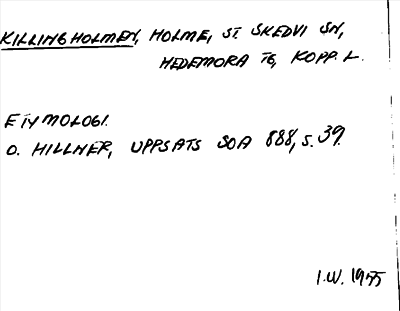 KILLINGHOLMEN, HOLME, ST SKEDVI SN,
HEDEMORA TG, KOPP. L.
ETYMOLOGI.
O. HILLNER, UPPSATS SOA 888, S. 39.
I.W. 1955